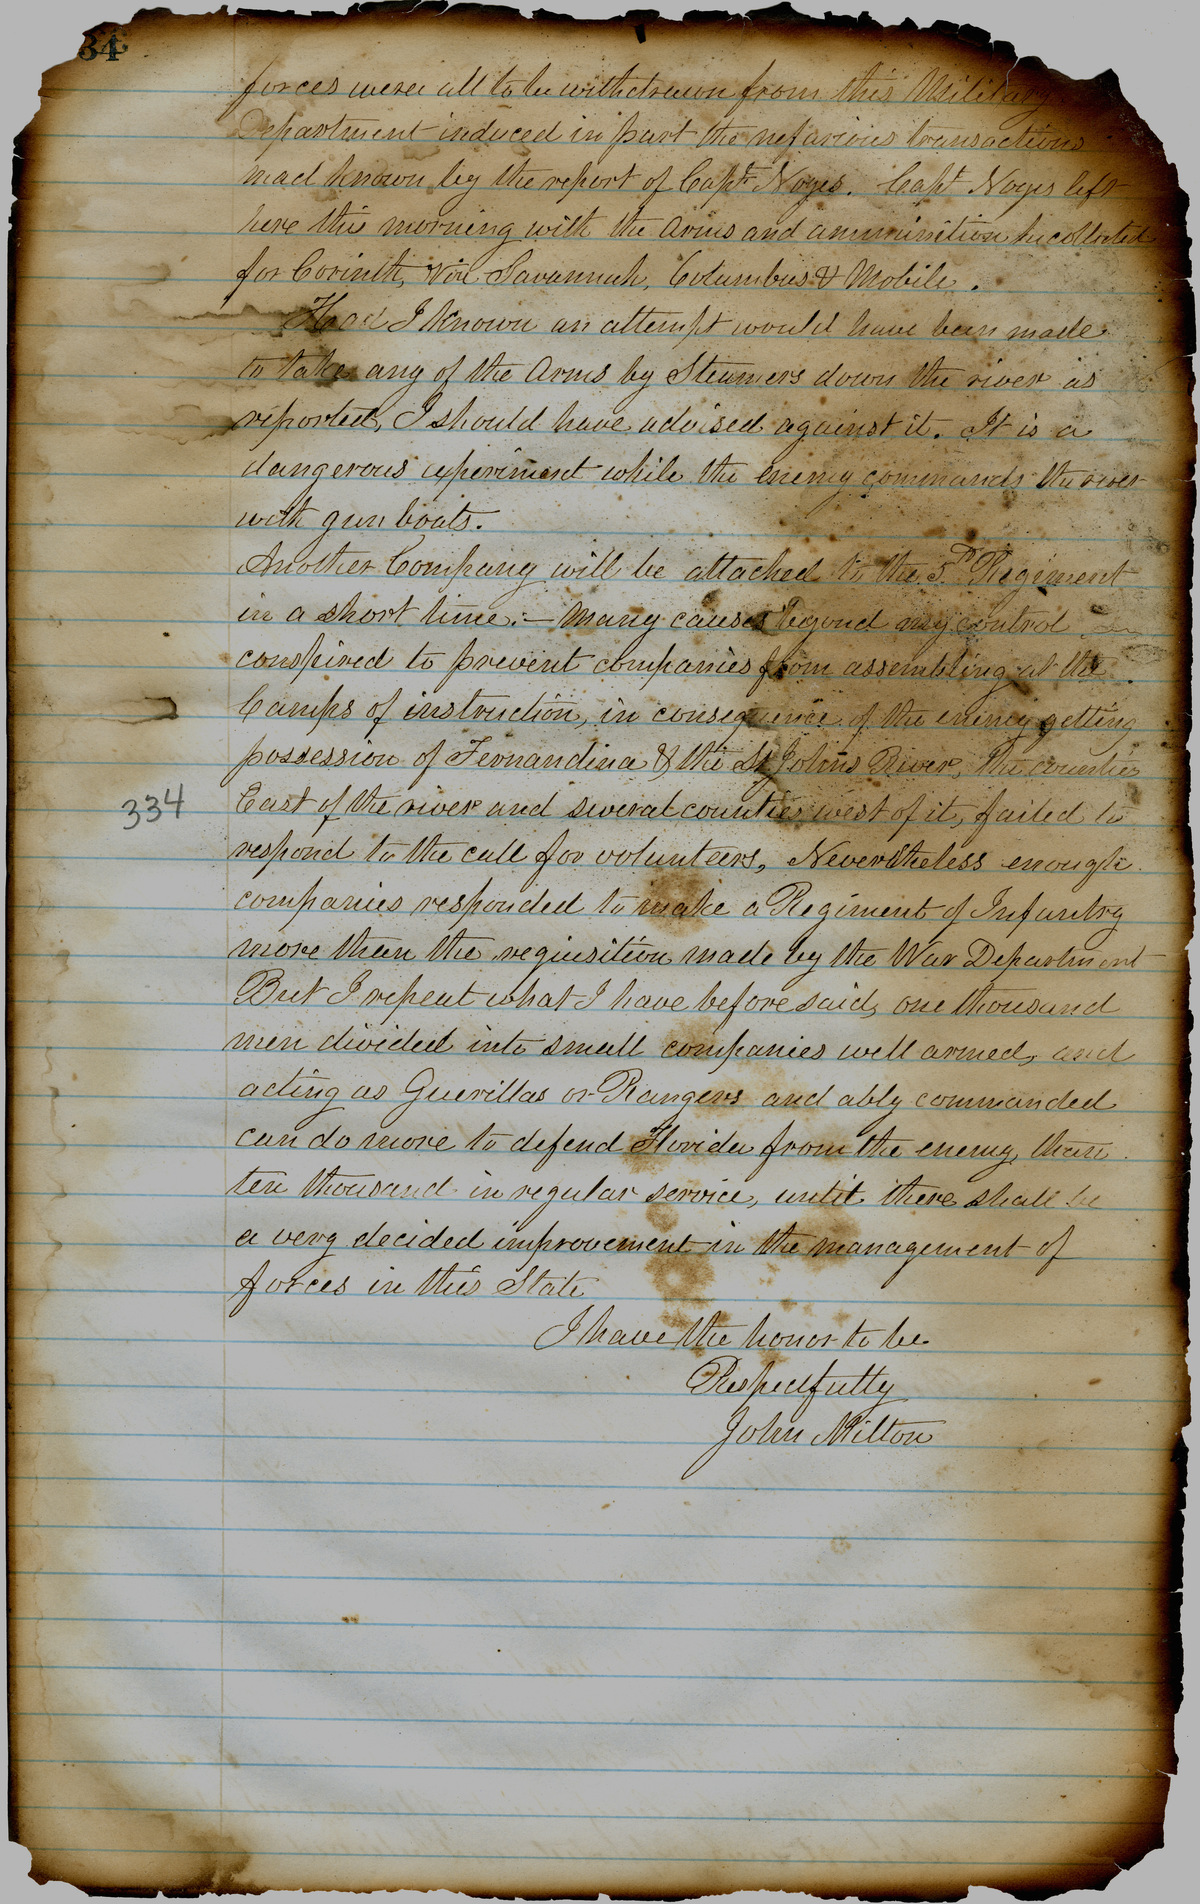 34
forces were all to be withdrawn from this Military
Department induced in part the nefarious transactions
mad known by the report of Capt. Noyes. Capt Noyes left
here this morning with the Arms and ammunition he collected
for Corinth, Via Savannah, Columbus & Mobile.
Had I known an attempt would have been made
to take any of the Arms by Steamers down the river as
reported, I should have advised against it. It is a
dangerous experiment while the enemy commands the river
with gun boats.
Another Company will be attached to the 3rd Regiment
in a short time:— Many causes beyond my control
conspired to prevent companies from assembling at the
Camps of instruction, in consequence of the enemy getting
possession of Fernandina & the St Johns River, the counties
334
East of the river and several counties west of it, failed to
respond to the call for volunteers, Nevertheless enough
companies responded to make a Regiment of Infantry
more than the requisition made by the War Department
But I repeat what I have before said, one thousand
men divided into small companies well armed, and
acting as Guerillas or Rangers and ably commanded
can do more to defend Florida from the enemy, than
ten thousand in regular service, until there shall be
a very decided improvement in the management of
forces in this State
I have the honor to be
Respectfully
John Milton